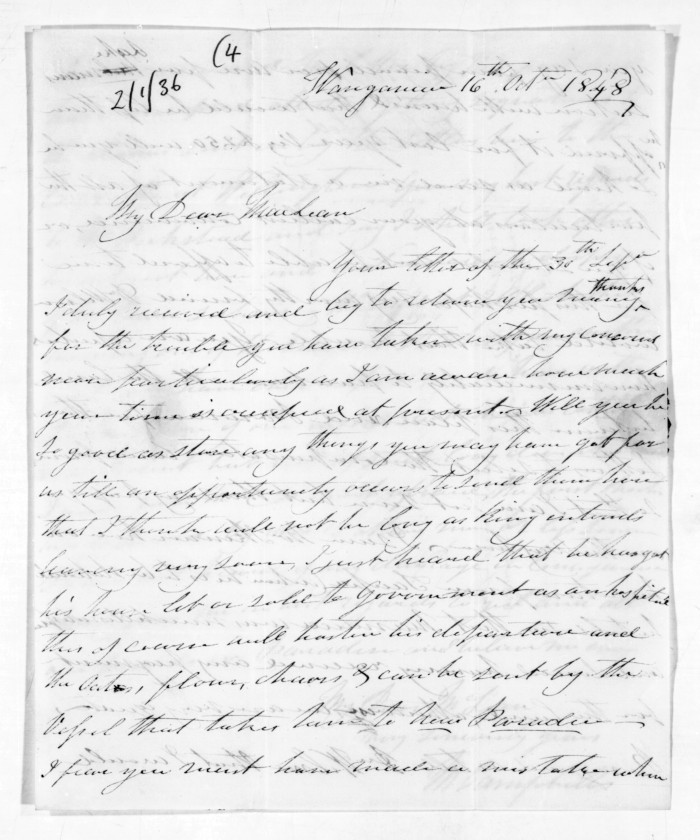 (4
2/1/36
Wanganui 16th Octr 1848
My Dear MacLean
Your letter of the 30th Sepr
I duly received and beg to return you many thanks
for the trouble you have taken with my concerns
more particularly as I am aware how much
your time is occupied at present. Will you be
so good as store any things you may have got for
us till an opportunity occurs to send them here
that I think will not be long as King intends
leaving very soon, I just heard that he has got
his house let or sold to Government as an hospital
this of course will hasten his departure and
the Oats, flour, chairs & can be sent by the
Vessel that takes him to New Paradise
I fear you must have made a mistake when